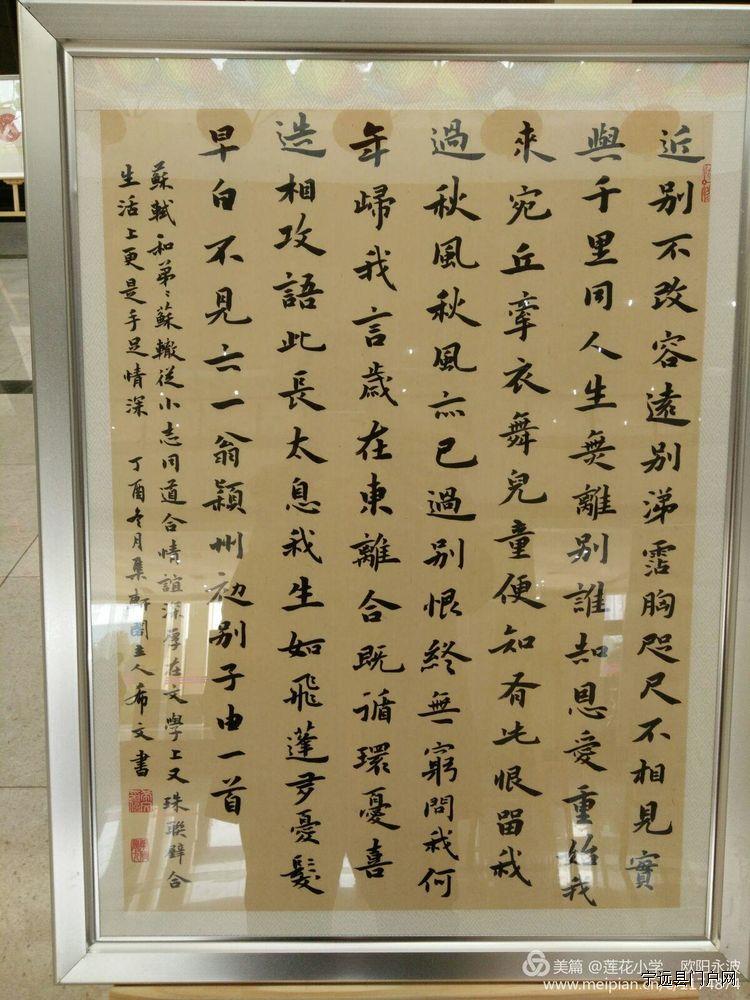 近别不改容遠别涕霑胸咫尺不相見實
與千里同人生無離别誰知恩愛重始我
來宛丘牽衣舞兒童便知有此恨留我
過秋風秋風亦已過别恨終無窮問我何
年歸我言歲在東離合既循環憂喜
迭相攻語此長太息我生如飛蓬多憂髮
早白不見六一翁潁州初别子由一首
蘇軾和弟弟蘇轍從小志同道合情誼深厚在文學上又珠聯璧合
生活上更是手足情深 丁酉冬月集 主人希文書
美篇 @莲花小学 欧阳永波
宁远县门户网
www.meipian.cn/